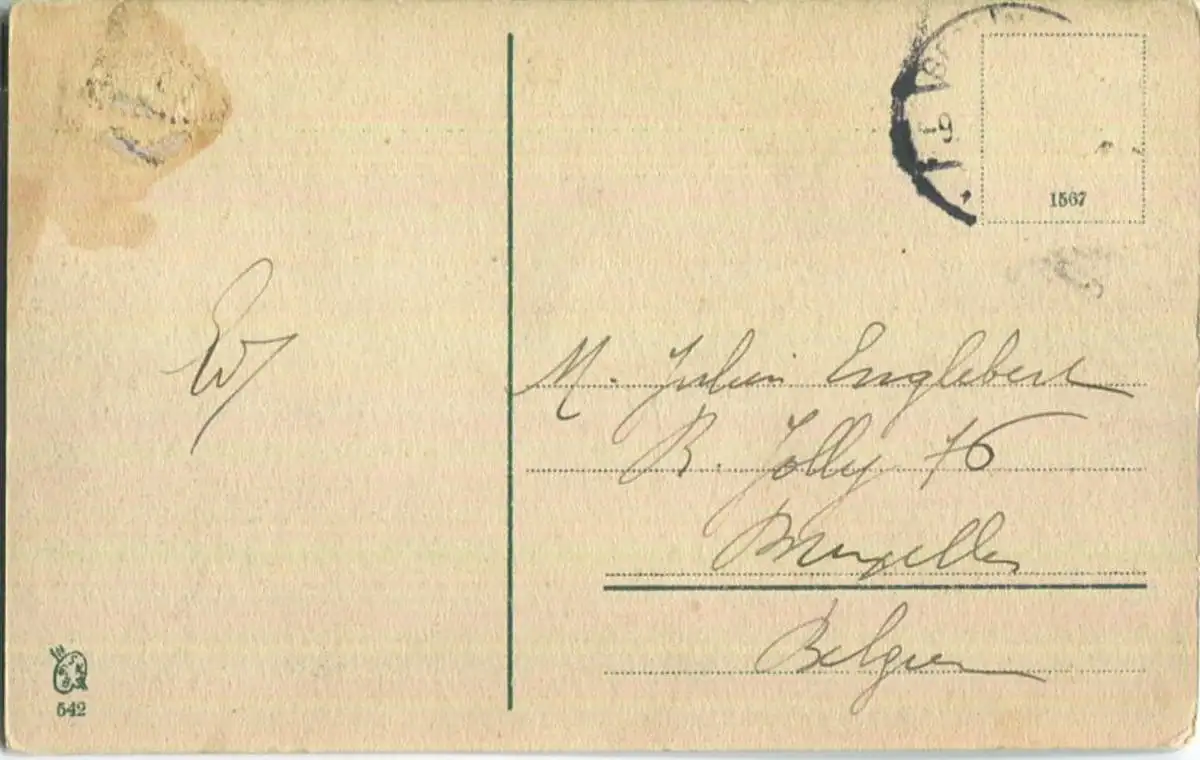 1567
M. Julien Englebert
R. Jolly 76
Bruxelles
Belgien
542